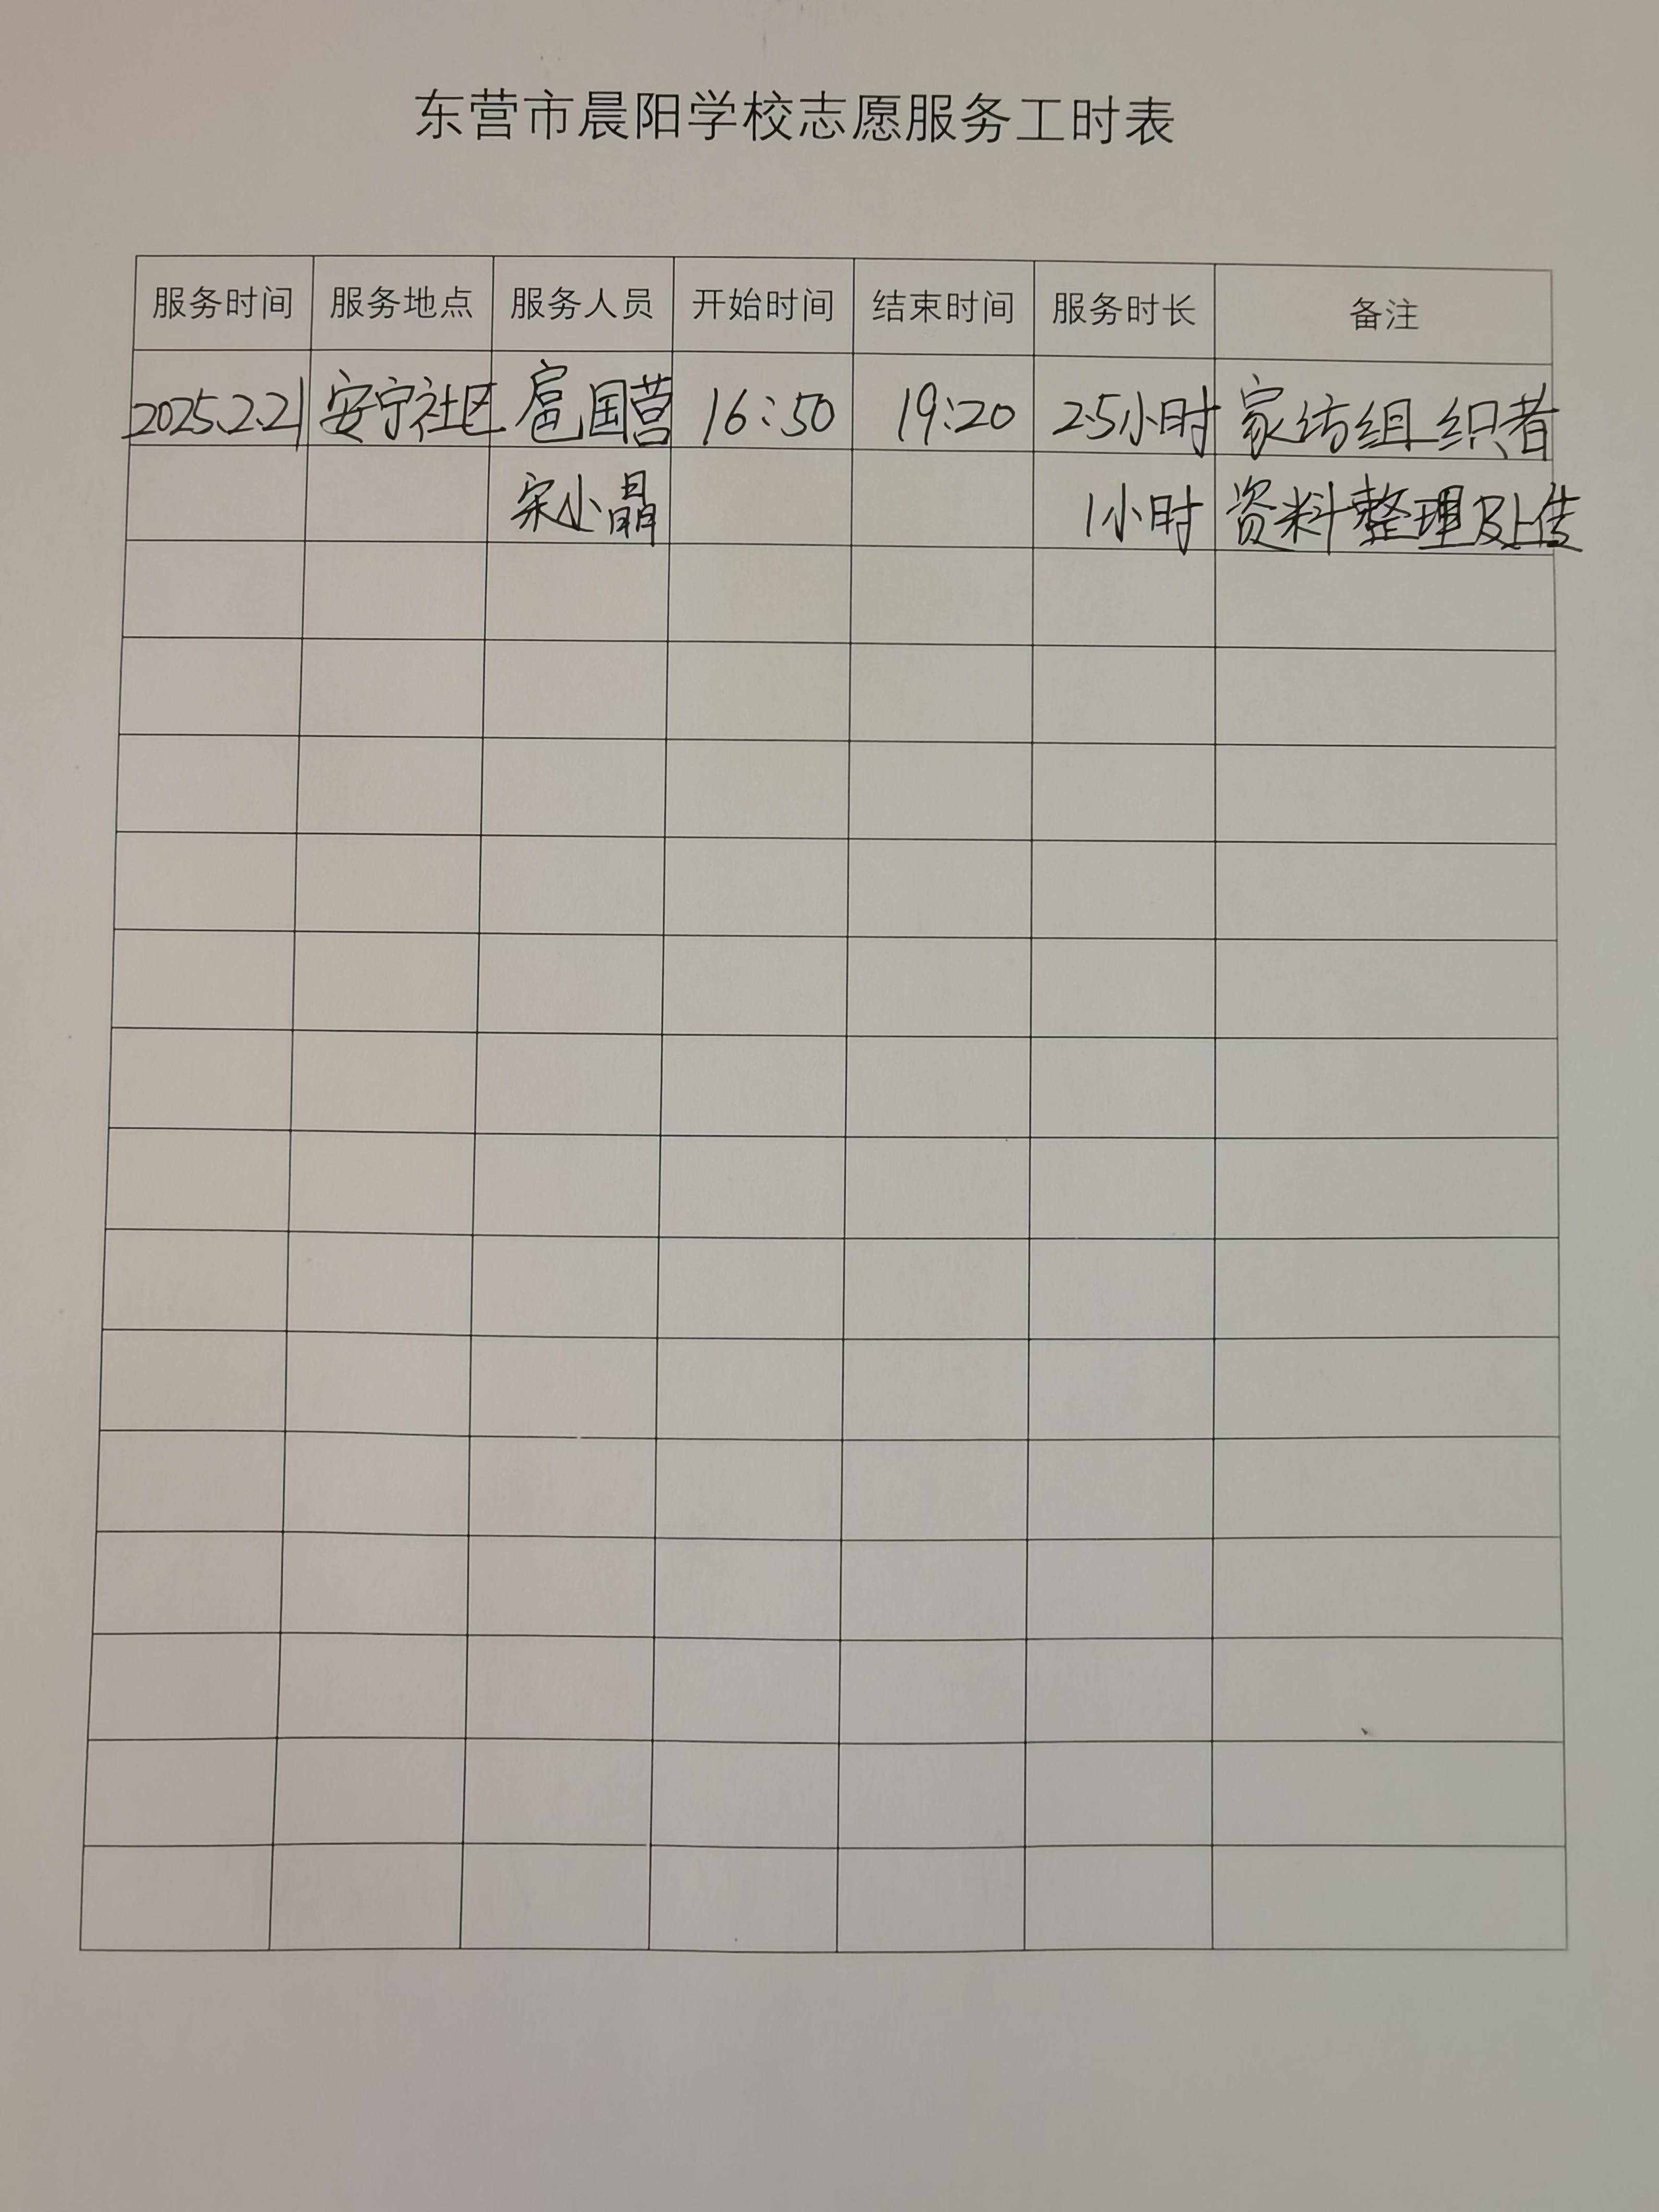 东营市晨阳学校志愿服务工时表
服务时间 服务地点 服务人员 开始时间 结束时间 服务时长 备注
2025.2.21 安宁社区 扈国营 16:50 19:20 2.5小时 家访组织者
宋小晶 1小时 资料整理及上传